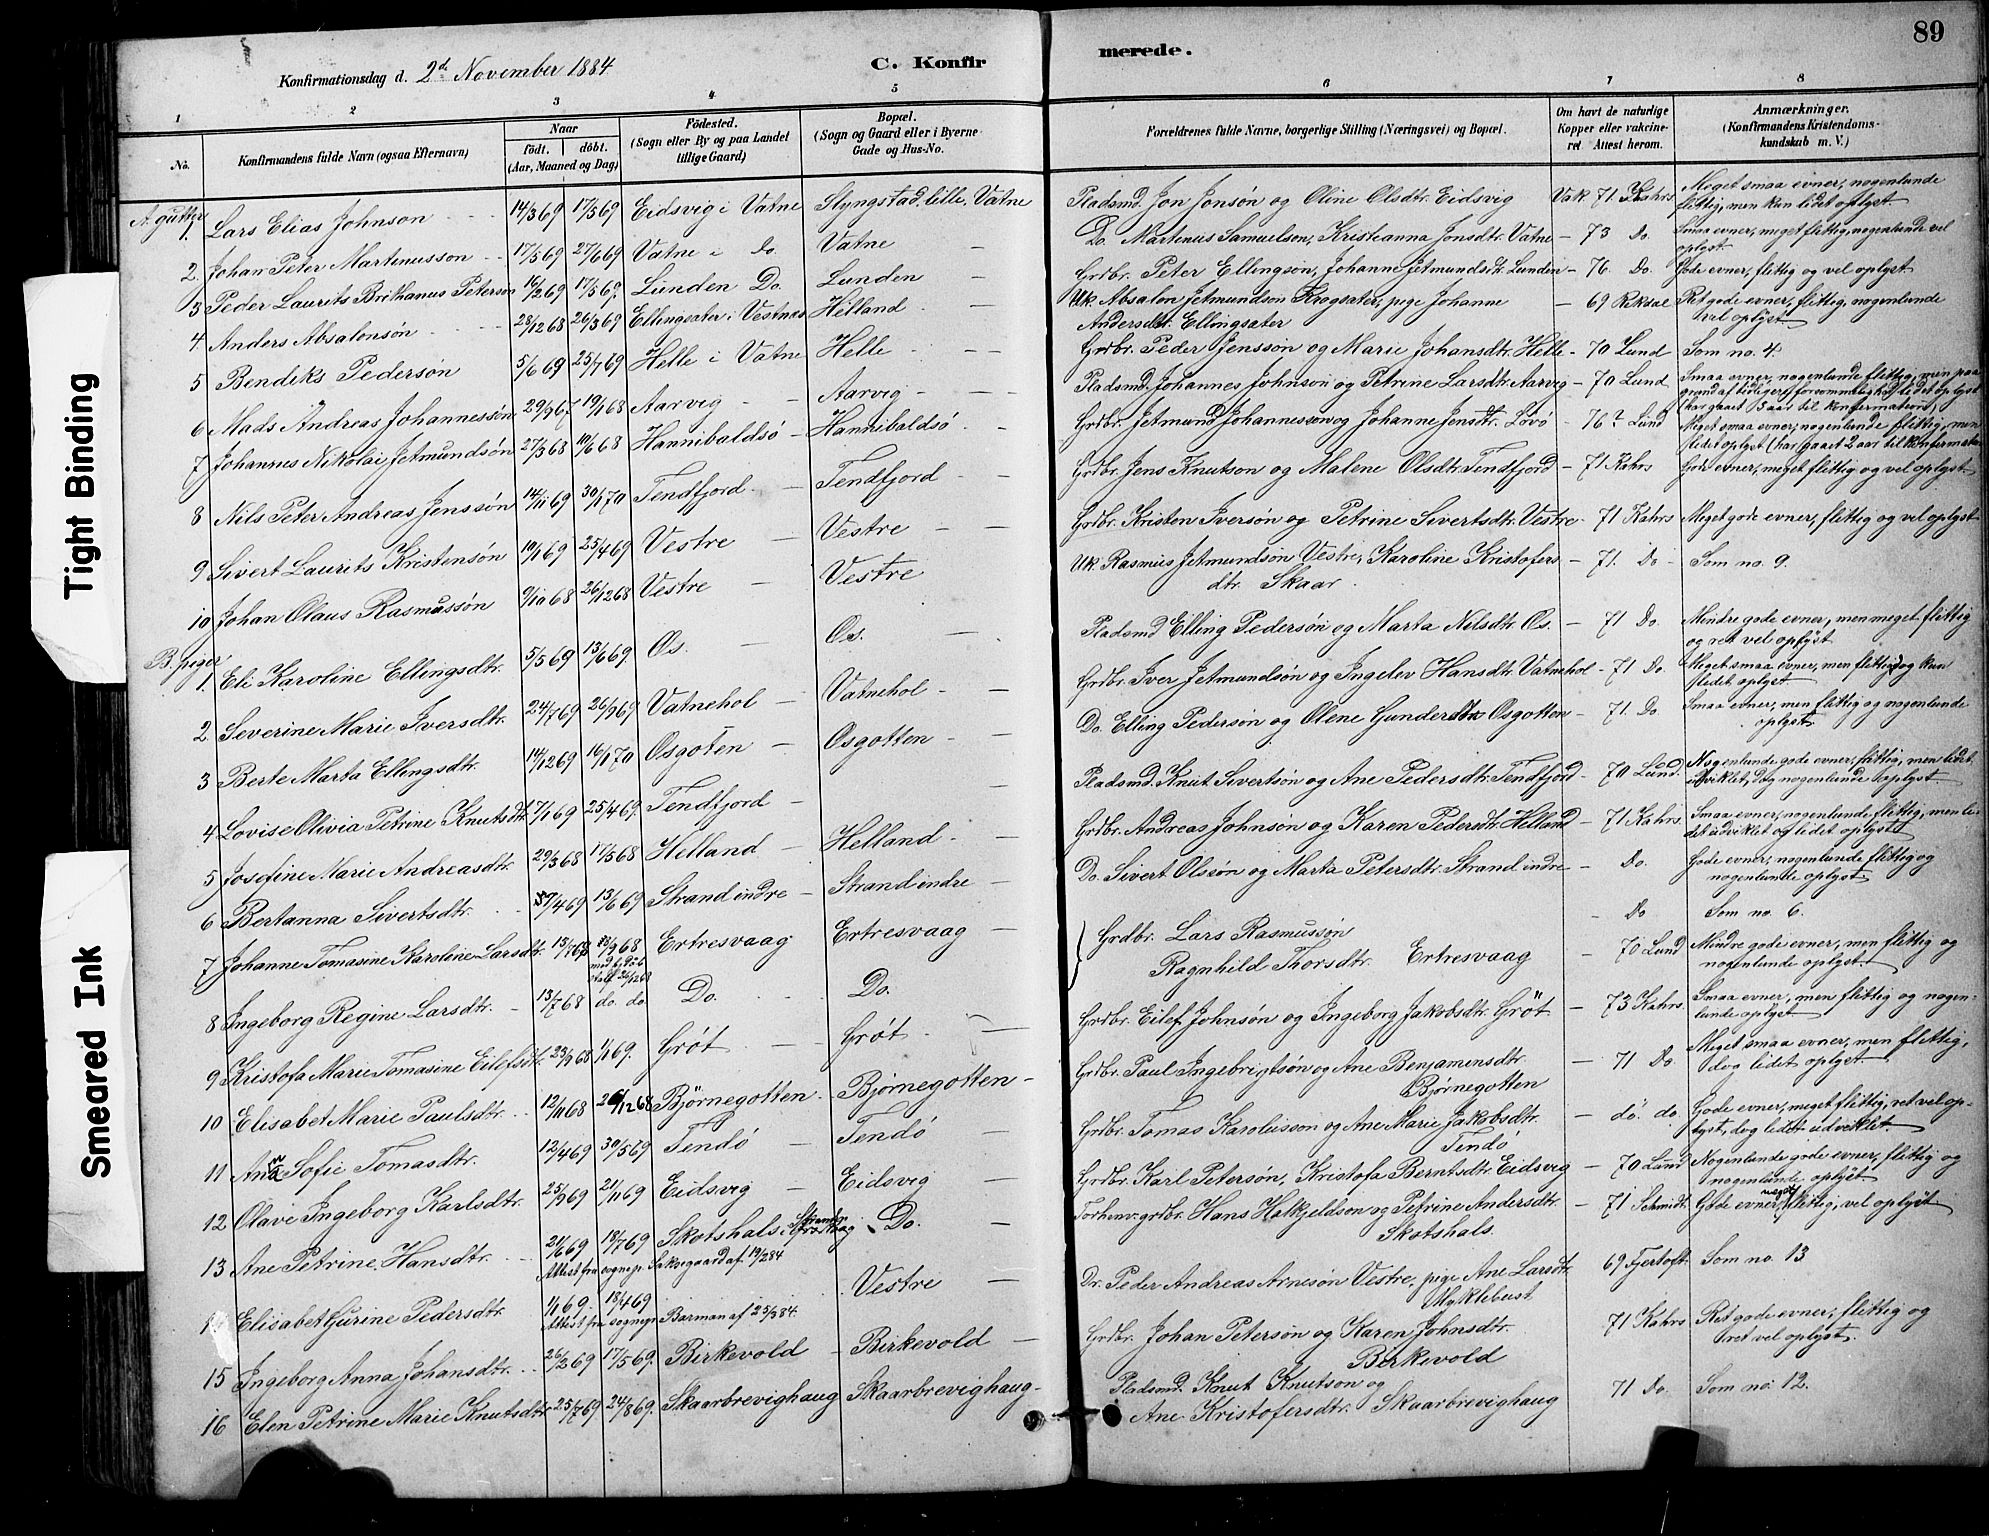 89
Konfirmationsdag d. 2d November 1884
C. Konfir
merede.
1 2 3 4 5 6 7 8
No.
Konfirmandens fulde Navn (ogsaa Efternavn)
Naar
födt. döbt.
(Aar, Maaned og Dag)
Födested.
(Sogn eller By og paa Landet
tillige Gaard)
Bopæl.
(Sogn og Gaard eller i Byerne
Gade og Hus-No.
Forældrenes fulde Navne, borgerlige Stilling (Næringsvei) og Bopæl.
Om havt de naturlige
Kopper eller vakcine-
ret Attest herom.
Anmærkninger.
(Konfirmandens Kristendoms-
kundskab m. V.)
Tight Binding
Smeared Ink
A. gutter
1. Lars Elias Johnson 14/3 69 17/5 69 Eidsvig i Vatne Slyngstad lille, Vatne Pladsmd. Jon Jonsön og Oline Olsdtr. Eidsvig Vak 71 Kahrs Meget smaa evner, nogenlunde
flittig, men kun lidet oplyst
2. Johan Peter Martinusson 17/5 69 27/6 69 Vatne i Do. Vatne Do. Martinus Samuelson, Kristianna Jonsdtr. Vatne 73 Do. Smaa evner, meget flittig, nogenlunde vel
oplyst
3 Peder Laurits Brithanus Peterson 16/2 69 17/5 69. Lunden Do. Lunden Grdbr. Peter Ellingsön, Johanne Jetmundsdtr. Lunden 76. Do. Gode evner, flittig og vel oplyst
4. Anders Absalonsön 28/12 68 26/3 69 Ellingsæter i Vestnes Helland Uk. Absalon Jetmundson Krogsæter, pige Johanne
Andersdtr. Ellingsæter 69 Rekdal Ret gode evner, flittig, nogenlunde
vel oplyst
5 Bendiks Pedersön 5/6 69 25/7 69 Helle i Vatne Helle Grdbr. Peder Jensson og Marie Johansdtr. Helle 70 Lund Som no. 4.
6 Mads Andreas Johannessön 29/9 67 19/1 68 Aarvig Aarvig Pladsmd. Johannes Johnson og Petrine Larsdtr. Aarvig 70 Lund Smaa evner, nogenlunde flittig, men paa
grund af tidligere forsømmelighed lidet oplyst
(har gaaet 3 aar til konfirmation)
7 Johannes Nikolai Jetmundsön 27/3 68 10/6 68 Hannibaldsö Hannibaldsö Grdbr. Jetmund Johannesen og Johanne Jensdtr. Lövö 76? Lund Meget smaa evner, nogenlunde flittig, men
lidet oplyst (har gaaet 2 aar til konfirmation
8 Nils Peter Andreas Jenssön 14/11 69 30/1 70 Tendfjord Tendfjord Grdbr. Jens Knutson og Malene Olsdtr. Tendfjord 71 Kahrs Gode evner, meget flittig og vel oplyst
9 Sivert Laurits Kristensön 10/1 69 25/4 69 Vestre Vestre Grdbr. Kristen Iversön og Petrine Sivertsdtr. Vestre 71 Kahrs Meget gode evner, flittig og vel oplyst
10 Johan Olaus Rasmussön 9/10 68 26/12 68 Vestre Vestre Uk. Rasmus Jetmundsön Vestre, Karoline Kristofers
dtr. Skaar. 71. Do Som no. 9.
B. piger
1. Eli Karoline Ellingsdtr. 5/5 69 13/6 69. Os. Os. Pladsmd Elling Pedersön og Marta Nilsdtr Os. 71 Do. Mindre gode evner, men meget flittig
og ret vel oplyst
2. Severine Marie Iversdtr. 24/7 69 26/9 69 Vatnehol Vatnehol Grdbr. Iver Jetmundsön og Ingelev Hansdtr. Vatnehol 71 Do. Meget smaa evner, men flittig, dog kun
lidet oplyst
3 Berte Marta Ellingsdtr. 14/12 69 16/1 70 Osgoten Osgotten Do. Elling Pedersön og Olene Gundersdtr Osgotten 71. Do. Smaa evner, men flittig og nogenlunde
oplyst
4 Lovise Olivia Petrine Knutsdtr. 7/1 69 25/4 69. Tendfjord Pladsmd. Knut Sivertsön og Ane Pedersdtr. Tendfjord 70 Lund. Nogenlunde gode evner, flittig, men lidet
udviklet, dog nogenlunde oplyst.
5 Josefine Marie Andreasdtr. 29/3 68 17/5 68 Helland Helland Grdbr. Andreas Johnsön og Karen Pedersdtr. Helland 71 Kahrs Smaa evner, nogenlunde flittig, men li-
det udviklet og lidet oplyst
6 Bertanna Sivertsdtr. 7/4 69 13/6 69 Strand indre Strand indre Do. Sivert Olssön og Marta Petersdtr. Strand indre Do. Gode evner, nogenlunde flittig og
nogenlunde oplyst
7 Johanne Tomasine Karoline Larsdtr. 13/7 68 /9 68 Ertresvaag Ertresvaag Grdbr. Lars Rasmussön
Ragnhild Thorsdtr. Ertresvaag Do Som no. 6.
8 Ingeborg Regine Larsdtr. 13/7 68 do. do. Do. Do. 70 Lund Mindre gode evner, men flittig og
nogenlunde oplyst.
9 Kristofa Marie Tomasine Eilefsdtr. 23/9 68 1/1 69. Gröt Gröt Grdbr. Eilef Johnsön og Ingeborg Jakobsdtr. Gröt 73 Kahrs. Smaa evner, men flittig og nogen-
lunde oplyst
10 Elisabet Marie Paulsdtr. 12/11 68 26/12 68 Björnegotten Bjørnegotten Grdbr. Paul Ingebrigtsön og Ane Benjaminsdtr.
Bjørnegotten 71 Do. Meget smaa evner, men flittig,
dog lidet oplyst
11 Ane Sofie Tomasdtr. 12/4 69 30/5 69 Tendö Tendö Grdbr. Tomas Karolusson og Ane Marie Jakobsdtr.
Tendö do. do. Gode evner, meget flittig, ret vel op-
lyst, dog lidet udviklet.
12 Olave Ingeborg Karlsdtr. 25/9 69 21/11 69 Eidsvig Eidsvig Grdbr. Karl Petersön, Kristofa Berntsdtr. Eidsvig 70 Lund Nogenlunde gode evner, flittig og
nogenlunde oplyst
13 Ane Petrine Hansdtr. 21/6 69 18/7 69 Skotshals i Do. Forhenv. grdbr. Hans Halkjeldson og Petrine Andersdtr.
Skotshals. 71 Schmidt. Gode evner, meget flittig, vel oplyst
Attest fra sognep. Saksegaard af 19/2 84
14 Elisabet Gurine Pedersdtr. 1/1 69. 18/4 69 Vestre Dr. Peder Andreas Arnesön Vestre, pige Ane Larsdtr.
Myklebust 69 Fjertoft. Som no. 13
Attest fra sognep. Barman af 25/3 84.
15 Ingeborg Anna Johansdtr. 26/2 69 17/5 69. Birkevold Birkevold Grdbr. Johan Petersön og Karen Johnsdtr.
Birkevold 71 Kahrs Ret gode evner, flittig og
ret vel oplyst.
16 Elen Petrine Marie Knutsdtr. 25/7 69 24/8 69. Skaarbrevighaug Skaarbrevighaug Pladsmd. Knut Knutson og
Ane Kristofersdtr. Skaarbrevighaug 71 Do. Som no: 12.